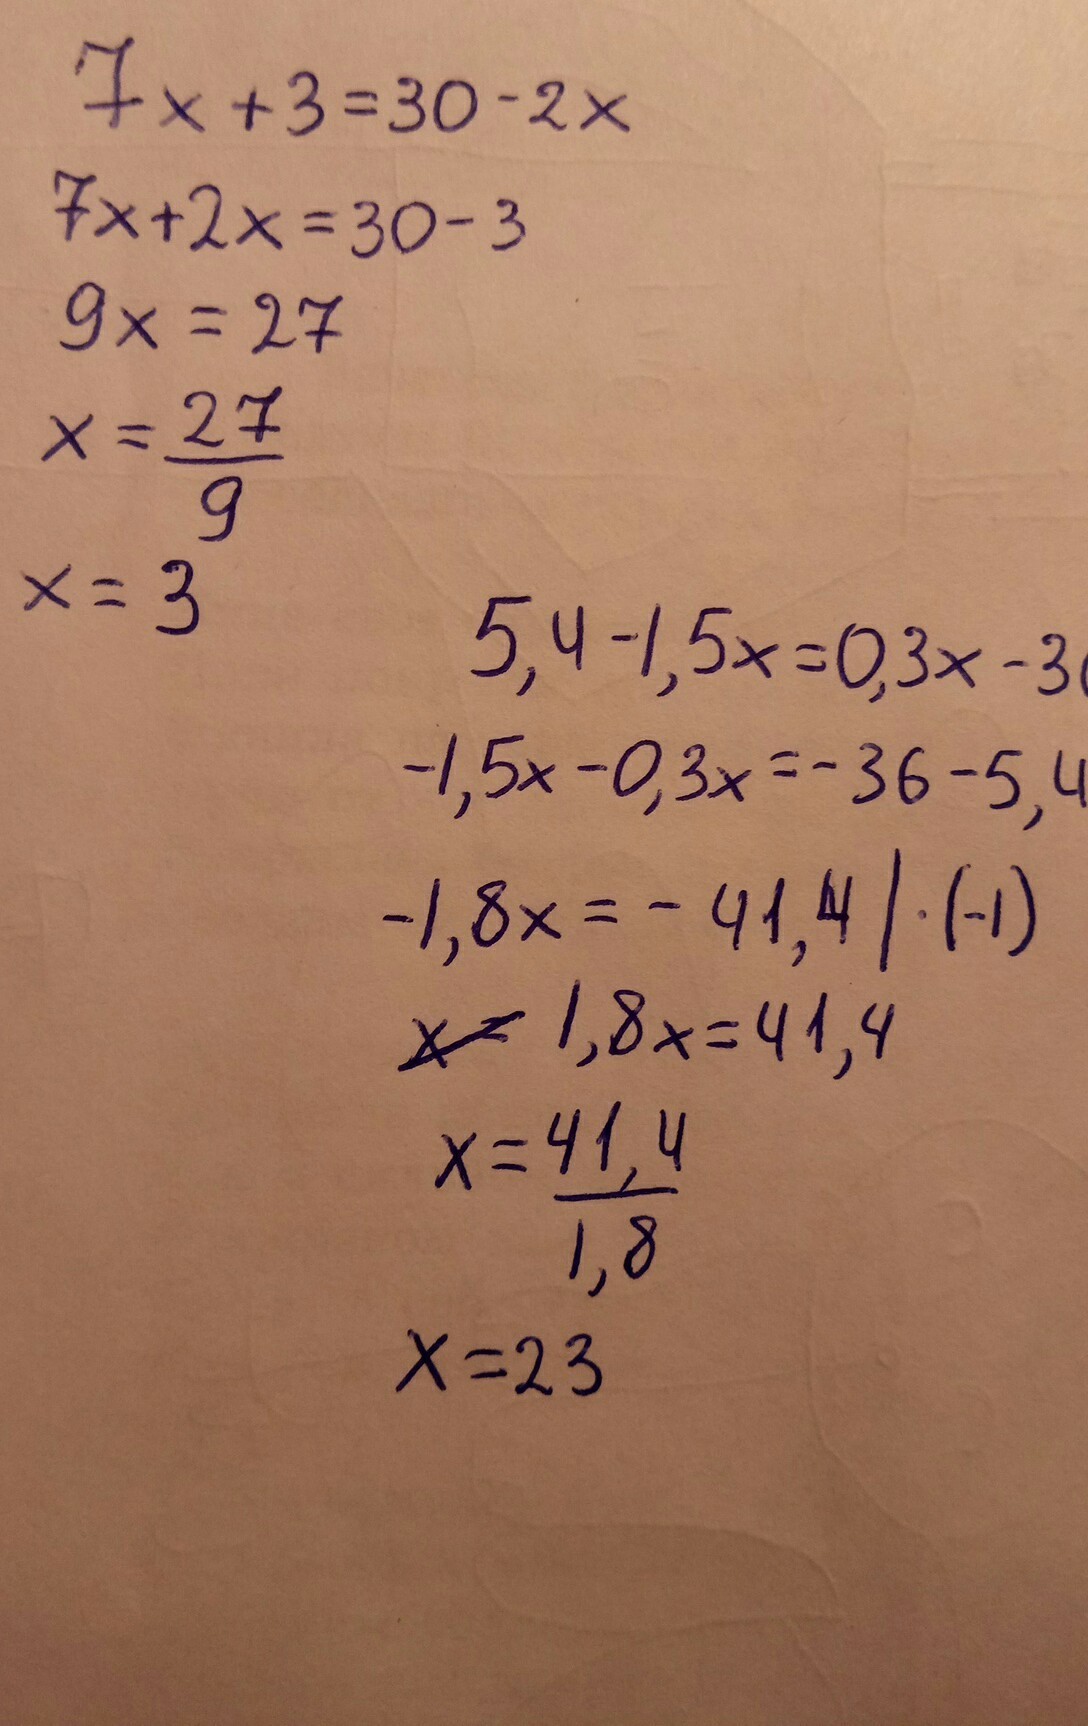 7x+3=30-2x
7x+2x=30-3
9x=27
x=27/9
x=3
5,4-1,5x=0,3x-36
-1,5x-0,3x=-36-5,4
-1,8x=-41,4 | ·(-1)
x= 1,8x=41,4
x=41,4/1,8
x=23